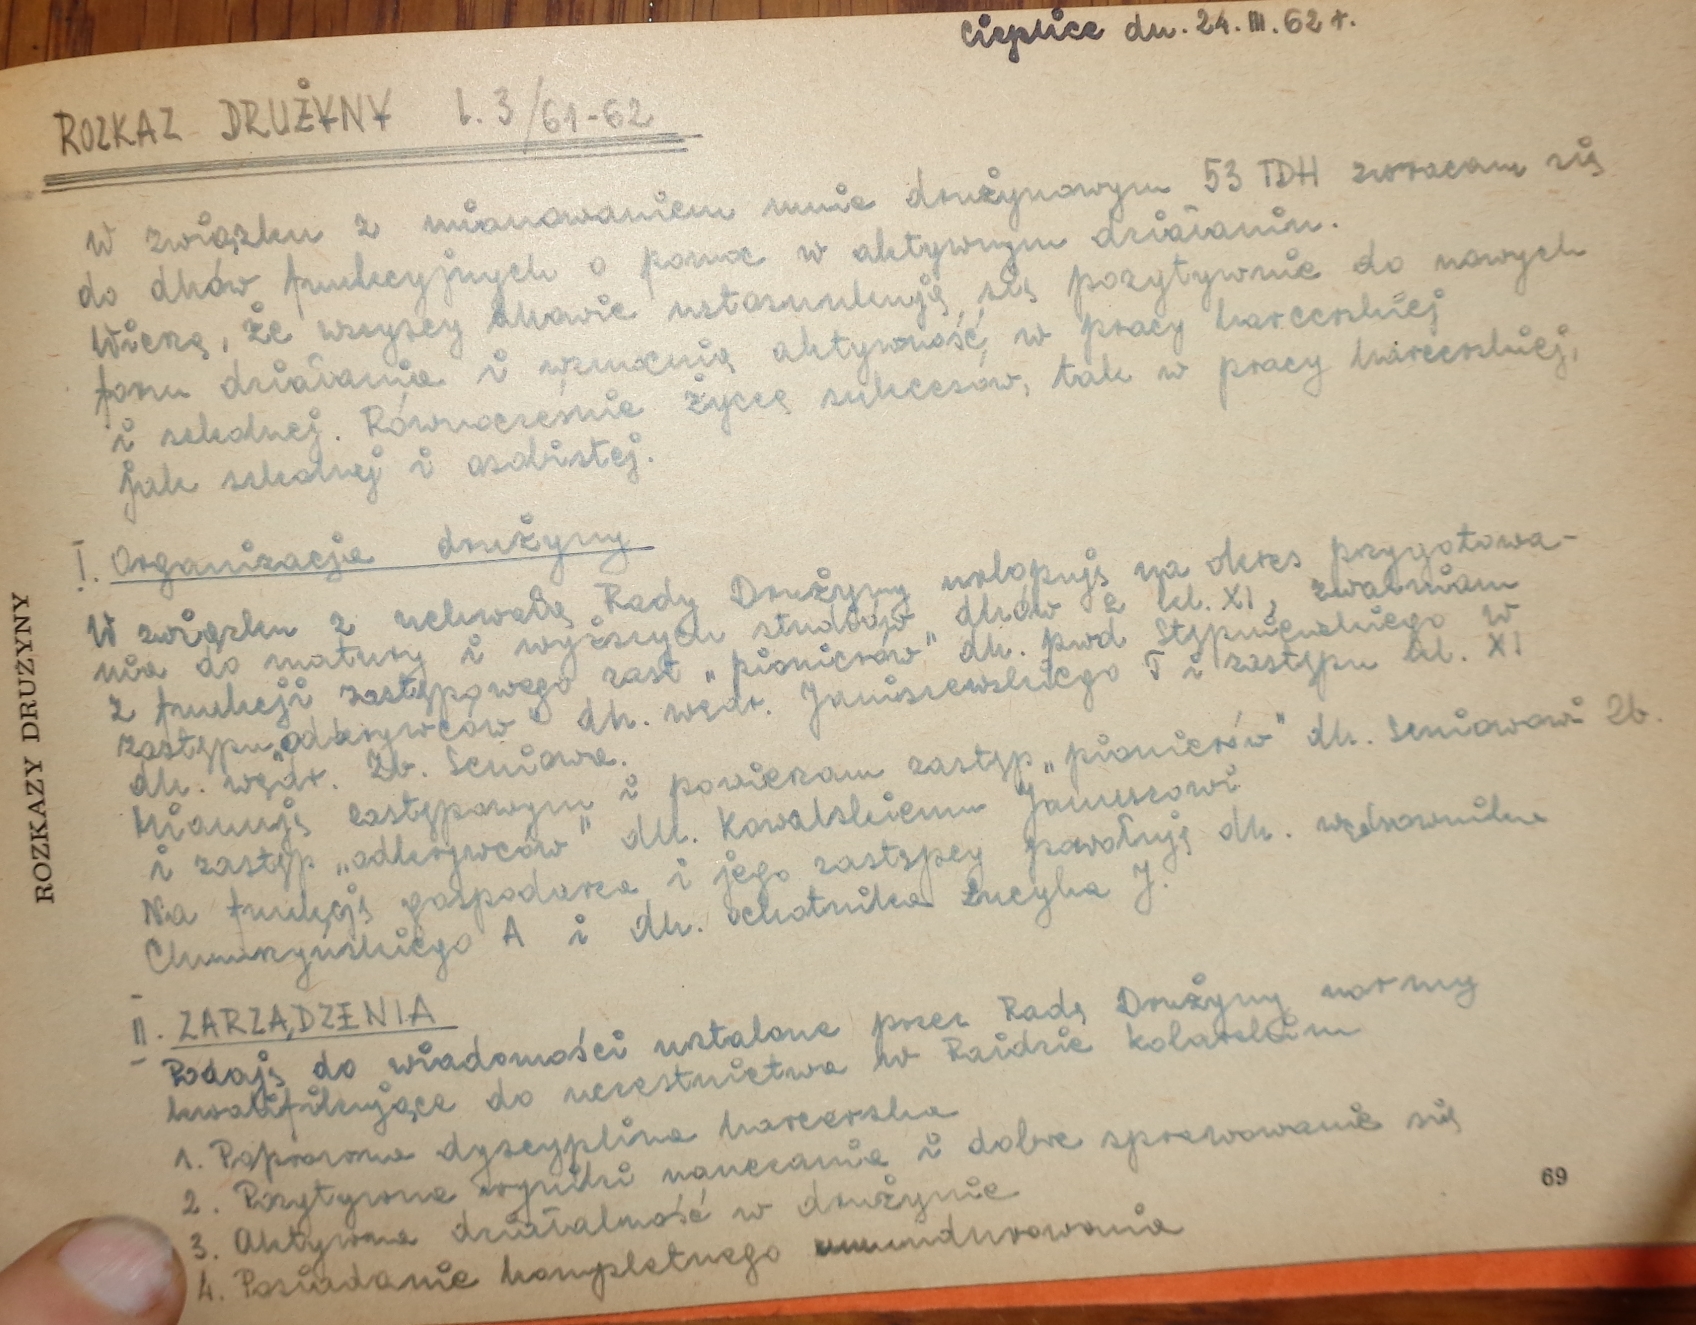 Cieplice dn. 24.III.62 r.
ROZKAZ DRUŻYNY L. 3/61-62
W związku z mianowaniem mnie drużynowym 53 TDH zwracam się
do dhów funkcyjnych o pomoc w aktywnym działaniu.
Wierzę, że wszyscy dhowie ustosunkują się pozytywnie do nowych
form działania i wzmocnią aktywność w pracy harcerskiej
i szkolnej. Równocześnie życzę sukcesów, tak w pracy harcerskiej,
jak szkolnej i osobistej.
I. Organizacja drużyny
W związku z uchwałą Rady Drużyny urlopuję na okres przygotowa-
nia do matury i wyższych studiów dhów z kl. XI, zwalniam
z funkcji zastępowego zast „pionierów" dh. pwd Stępniewskiego w
zastępu „odkrywców" dh. wędr. Janiszewskiego T i zastępu kl. XI
dh. wędr. Zb. Seniowa.
Mianuję zastępowym i powierzam zastęp „pionierów" dh. Seniowowi Zb.
i zastęp „odkrywców" dh. Kowalskiemu Januszowi
Na funkcję gospodarza i jego zastępcy powołuję dh. wędrownika
A i dh. ochotnika Łucyka J.
II. ZARZĄDZENIA
Podaję do wiadomości ustalone przez Radę Drużyny normy
kwalifikujące do uczestnictwa w Raidzie kolarskim
1. Poprawna dyscyplina harcerska
2. Pozytywne wyniki nauczania i dobre sprawowanie się
3. Aktywna działalność w drużynie
4. Posiadanie kompletnego umundurowania
ROZKAZY DRUŻYNY
69